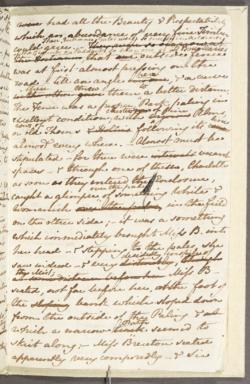 had all the Beauty & Respectability
which an abundance of very fine Timber
could give.
that an outside Fence
was at first almost pressing on the
road - till an angle here, & a curve
there threw them to a better distance.
The Fence was a proper Park paling in
excellent condition; with clusters of fine Elms,
or old Thorns following its line
almost every where. - Almost must be
stipulated - for there were vacant
spaces - & through one of these, Charlotte
as soon as they entered the Enclosure
caught a glimpse over the pales of something White &
Womanish in the field
on the other side; - it was a something
which immediately brought Miss B. into
her head - & stepping to the pales, she
saw indeed - & very decidedly, in spite of
the Mist; Miss B
seated, not far before her, at the foot of
the bank which sloped down
from the outside of the Paling & 
which a narrow Path seemed to
skirt along; - Miss Brereton seated,
apparently very composedly - & Sir